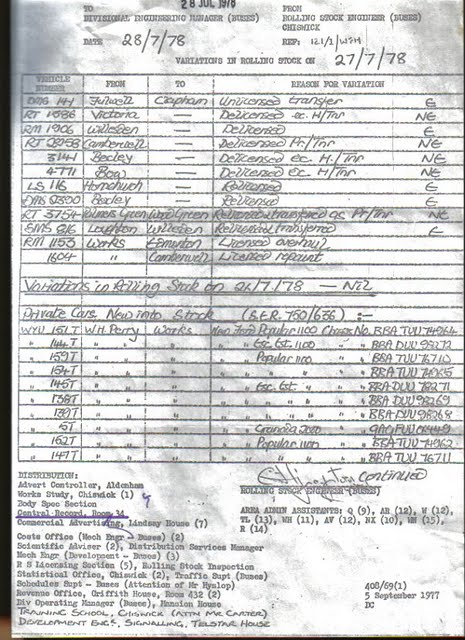 28 JUL 1978
TO FROM
DIVISIONAL ENGINEERING MANAGER (BUSES) ROLLING STOCK ENGINEER (BUSES)
CHISWICK
DATE 28/7/78 REF:
VARIATIONS IN ROLLING STOCK ON 27/7/78
VEHICLE NUMBER FROM TO REASON FOR VARIATION
DMS 141 Fulwell Clapham Unlicensed transfer E
RT 1586 Victoria — Delicensed ex. H/Tnr NE
RM 1906 Willesden — Delicensed E
RT Camberwell — Delicensed Pt./Tnr NE
3141 Bexley — Delicensed ex. H./Tnr NE
4771 Bow — Delicensed ex H/Tnr NE
LS 116 Hornchurch — Relicensed E
DMS Bexley — Relicensed E
RT 3754 Palmers Green Wood Green Relicensed & transferred as Pt/Tnr NE
SMS 816 Loughton Willesden Relicensed & transferred E
RM 1153 Works Edmonton Licensed overhaul
1604 " Camberwell Licensed repaint
Variations in Rolling Stock on 26/7/78 — Nil
Private Cars New into Stock (S.E.R. 750/636) :-
WYU 151T W.H. Perry Works New Ford Popular 1100 Chassis No. BBA TUU 74964
" 144T " " " " " Esc. Est. 1100 " BBA DUU 98272
" 159T " " " " " Popular 1100 " BBA TUU 76710
" 154T " " " " " " " " BBA TUU 74965
" 145T " " " " " Esc. Est. " " BBA DUU 98271
" 138T " " " " " " " " BBA DUU 98269
" 139T " " " " " " " " BBA DUU 98268
" 15T " " " " " Granada 2000 "
" 152T " " " " " Popular 1100 " BBA TUU 74962
" 147T " " " " " " " " BBA TUU 76711
continued
DISTRIBUTION:
ROLLING STOCK ENGINEER (BUSES)
Advert Controller, Aldenham
Works Study, Chiswick (1)
Body Spec Section
Central Record, Room 34
Commercial Advertising, Lindsay House (7)
AREA ADMIN ASSISTANTS: Q (9), AR (12), W (12),
TL (13), WH (11), AV (12), NX (10), WN (15),
R (14)
Costs Office (Mech Engr - Buses) (2)
Scientific Adviser (2), Distribution Services Manager
Mech Engr (Development - Buses) (3)
R S Licensing Section (5), Rolling Stock Inspection
Statistical Office, Chiswick (2), Traffic Supt (Buses)
Schedules Supt - Buses (Attention of Mr Hyslop)
Revenue Office, Griffith House, Room 432 (2)
Div Operating Manager (Buses), Mansion House
408/69(1)
5 September 1977
DC
TRAINING SCHOOL, CHISWICK (ATTN MR CARTER)
DEVELOPMENT ENG'S, SIGNALLING, TELSTAR HOUSE